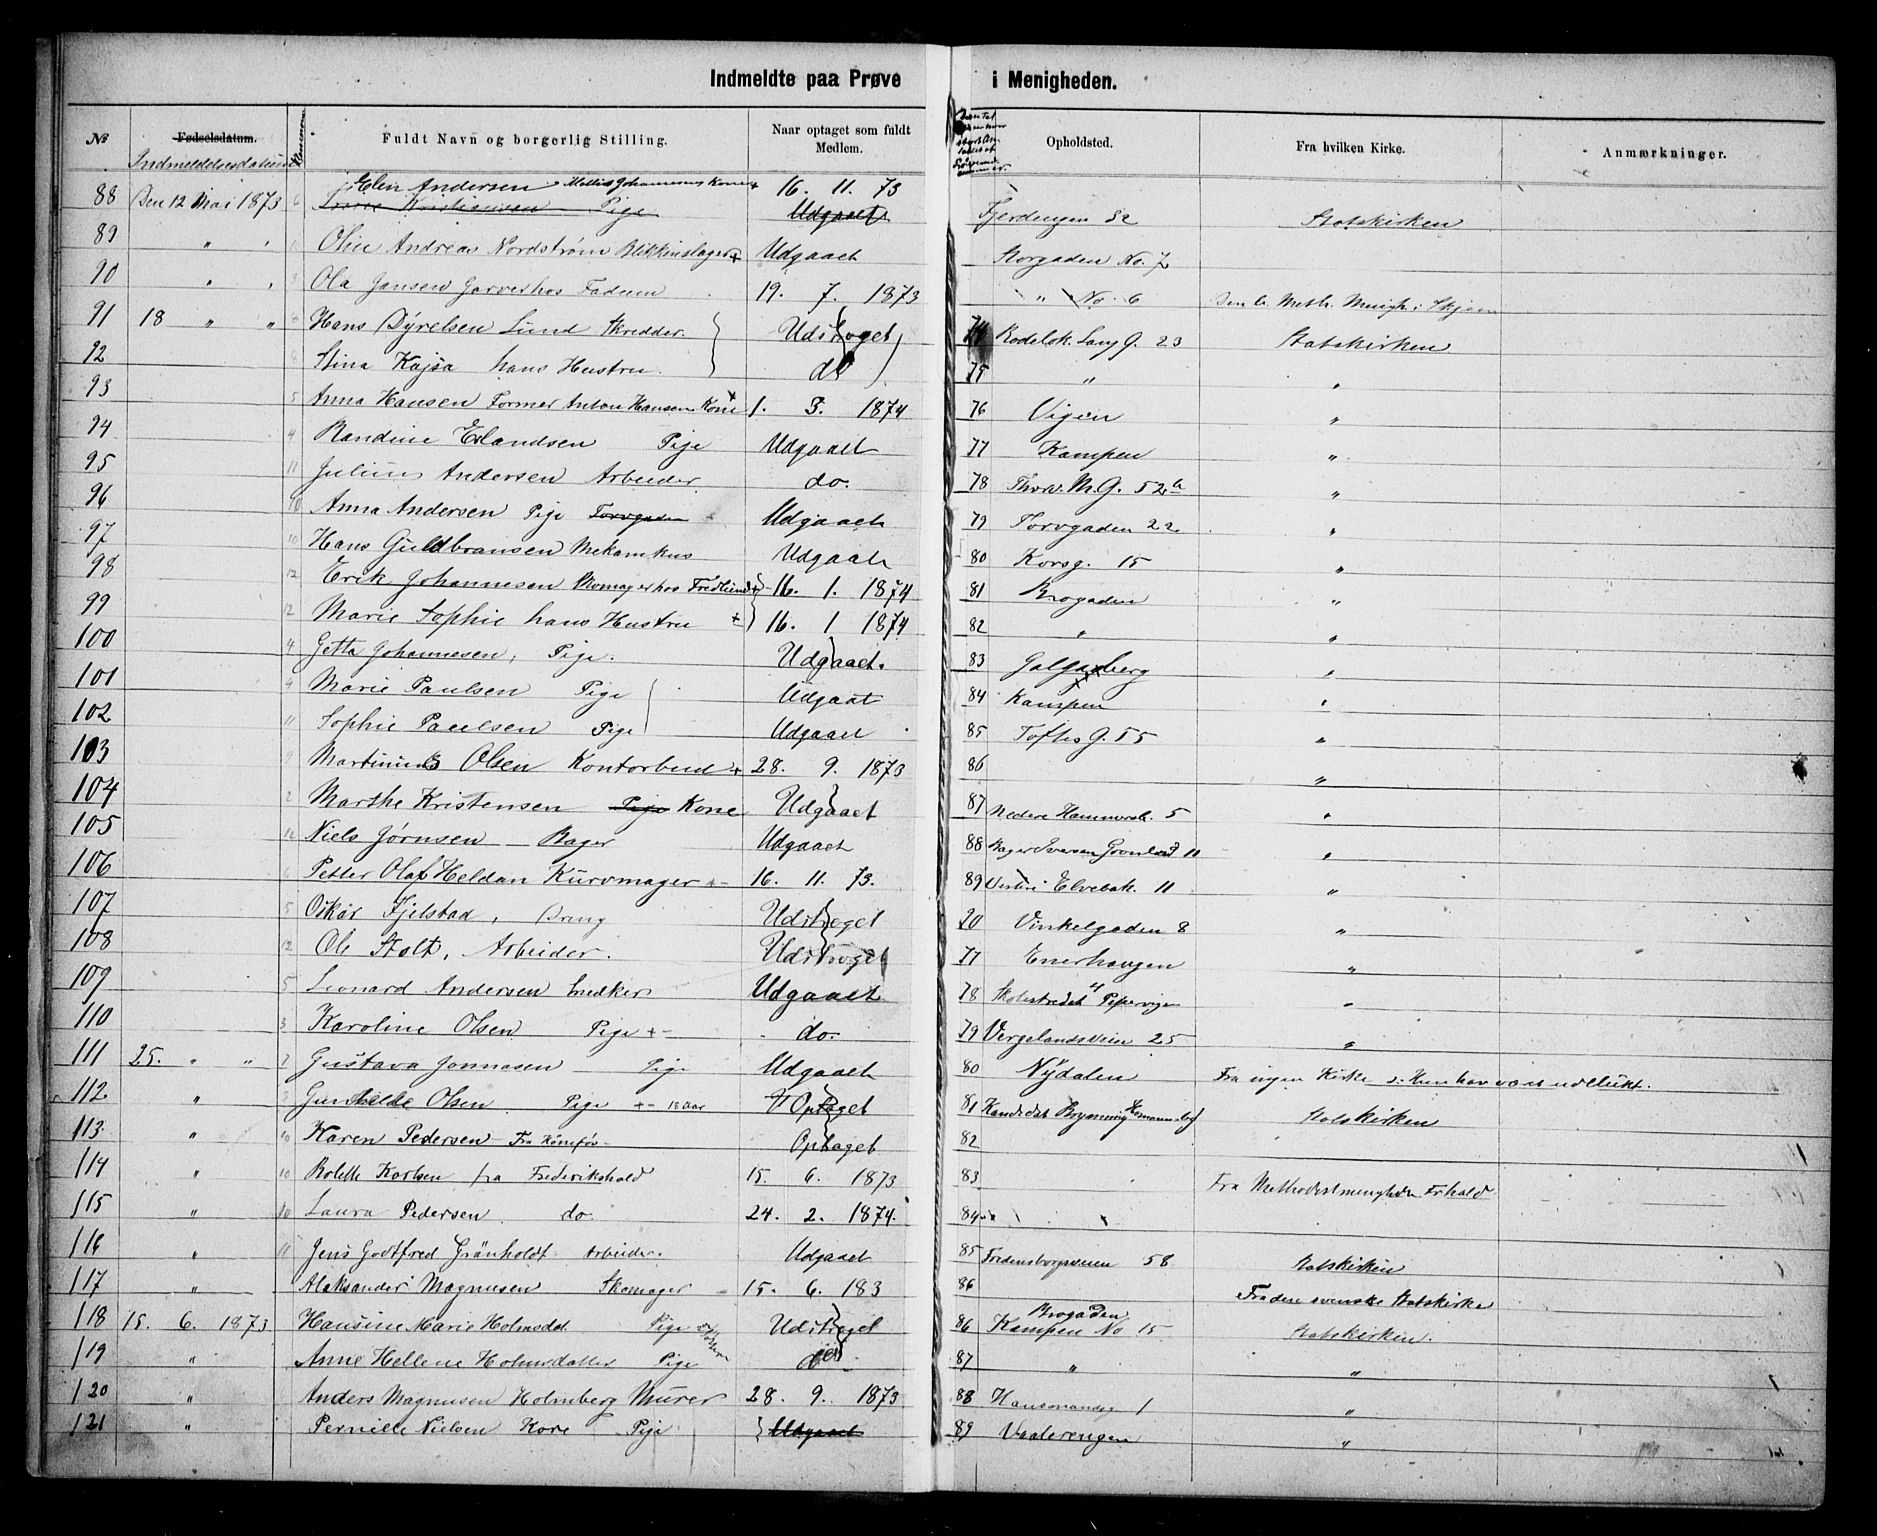 Indmeldte paa Prøve i Menigheden.
№ Fødselsdatum. Fuldt Navn og borgerlig Stilling. Naar optaget som fuldt Medlem. Opholdsted. Fra hvilken Kirke. Anmærkninger.
Indmeldelsesdatum
Elen Andersen Kone 16. 11. 73
88 Den 12 Mai 1873 6 Kristiansen Pige Udgaaet Fjerdingen 32 Statskirken
89 " Olin Andreas Nordström Blikkenslager + Udgaaet Storgaden No. 7
90 " Ola Jansen Garver hos Fadum 19. 7. 1873 " No. 6 Den b. Meth. Menigh. i Skjeen
91 18 " " Hans Dyrelsen Lund Skredder. Udstroget 74 Rodelok. Lang G. 23 Statskirken
92 Stina Kajsa hans Hustru. do 75 " "
93 5 Anna Hansen Former Anton Hansen Kone 1. 3. 1874 76 Vigen "
94 4 Randine Erlandsen Pige Udgaaet 77 Kampen "
95 11 Julius Andersen Arbeider do. 78 Thorv. M. G. 52 a "
96 10 Anna Andersen Pige Torvgaden Udgaaet 79 Torvgaden 22 "
97 10 Hans Guldbransen Mekanikus Udgaaet 80 Korsg. 15 "
98 12 Erik Johannesen Skomager hos Fredlund + 16. 1. 1874 81 Brogaden "
99 12 Marie Sophie hans Hustru + 16. 1 1874 82 " "
100 4 Getta Johannesen, Pige. Udgaaet. 83 Galgeberg "
101 4 Marie Paulsen Pige Udgaat 84 Kampen "
102 11 Sophie Paulsen Pige Udgaaet 85 Toftes G. 55 "
103 9 Martinius Olsen Kontorbud + 28. 9. 1873 86 "
104 2 Marthe Kristensen Pige Kone Udgaaet 87 Nedere Hammersb. 5 "
105 12 Niels Jørnsen Bager Udgaaet 88 Bager Iversen Grønland 11 "
106 6 Petter Olaf Heldan Kurvmager + 16. 11. 73. 89 Vestre Elvebak. 11 "
107 5 Oskar Fjelstad, Dreng Udstreget 20 Vinkelgaden 8 "
108 12 Ole Stolt, Arbeider. Udstroget 77 Enerhaugen "
109 5 Leonard Andersen Snedker Udgaaet 78 Skolestredet 4 Pipervigen "
110 3 Karoline Olsen Pige +- do. 79 Vergelandsveien 25 "
111 25. " " 7 Gustava Jonnasen Pige Udgaaet 80 Nydalen Fra ingen Kirke
112 " 3 Gunhilde Olsen Pige +- 18 Aar Optaget 81 Kandidat Statskirken
113. " 10 Karen Pedersen Fra Hönefos Optaget 82
114 " 10 Bolette Karlsen fra Frederikshald 15. 6. 1873 83 Fra Methodistmenigheden Frhald
115 " 10 Laura Pedersen do. 24. 2. 1874. 84
116 " 11 Jens Godtfred Gränholdt Arbeider. Udgaaet 85 Fredensborgveien 58 Statskirken
117 " Aleksander Magnusen Skomager 15. 6. 183 86 Fra den svenske Statskirke
Brogaden
118 15. 6. 1873 Hansine Marie Holmsdat Pige Udstreget 86 Kampen No 15 Statskirken.
119 " Anne Hellene Holmsdatter Pige do 87 " "
120 " Anders Magnusen Holmberg Murer 28. 9. 1873 88 1 "
121 " Pernille Nielsen Kore Pige Udgaaet 89 Vaalerengen "